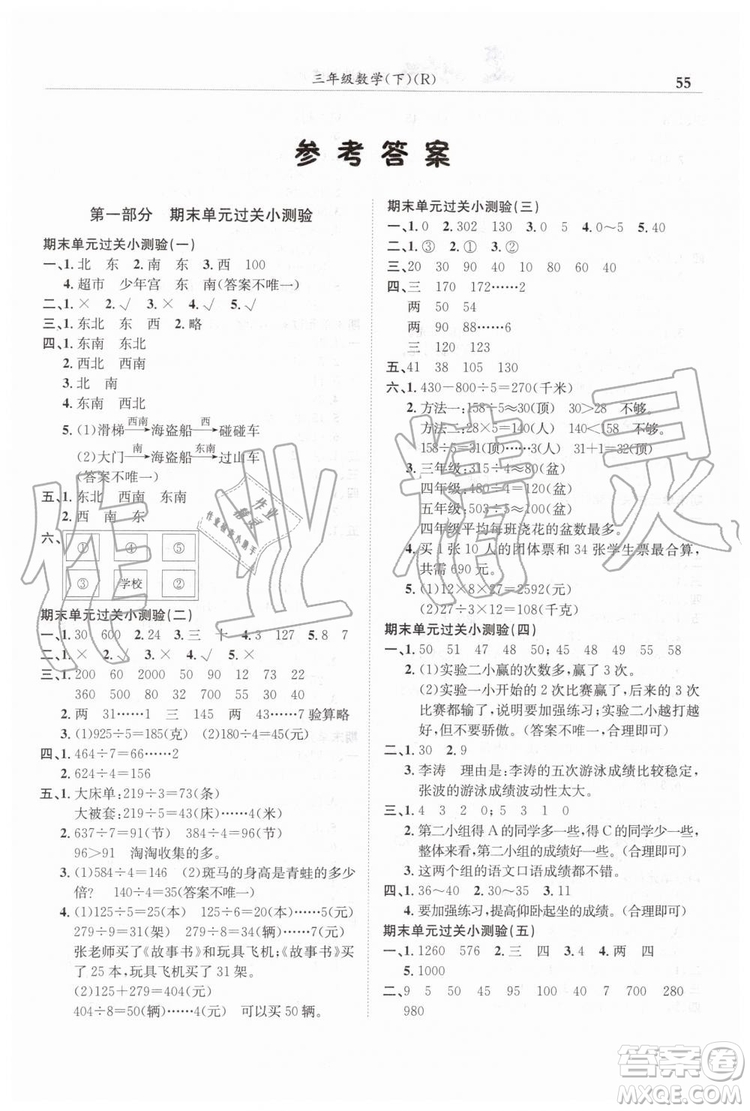 三年级数学(下)(R)
55
参考答案
第一部分 期末单元过关小测验
期末单元过关小测验(一)
一、1. 北 东 2. 南 东 3. 西 100
4. 超市 少年宫 东 南(答案不唯一)
二、1. × 2. √ 3. × 4. √ 5. √
三、1. 东北 东 西 2. 略
四、1. 东南 东北
2. 西北 西南
3. 北 南
4. 西南 东北
5. (1)滑梯 西南→ 海盗船 西→ 碰碰车
(2)大门 南→ 海盗船 东南→ 过山车
(答案不唯一)
五、1. 东北 西南 东南
2. 西 南 东
六、
④ ① ⑤
③ 学校 ②
期末单元过关小测验(二)
一、1. 30 600 2. 24 3. 三 十 4. 3 127 5. 8 7
三、1. 200 60 2000 22 23 72
36 32 700 50 90 50
2. 两 31……1 三 145 两 43……7 验算略
3. (1)925÷5=185(克) (2)180÷5=36(克)
四、1. 464÷7=66……2
2. 624÷4=156
五、1. 大床单:219÷3=73(条)
大被套:217÷3=72(条)……3(米)
2. 637÷7=91(节) 384÷4=96(节)
96>91 淘淘收集的多。
3. (1)584÷4=146 (2)斑马的身高是青蛙的多少
倍? 140÷5=28(答案不唯一)
4. (1)125÷5=25(本) 125÷9=13(辆)……8(元)
279÷9=31(辆) 279÷5=55(本)……4(元)
张老师买了《故事书》和玩具飞机;《故事书》买
了 25 本,玩具飞机买了 31 架。
(2)125+279=404(元)
404÷8=50(辆)……4(元) 可以买 50 辆。
期末单元过关小测验(三)
一、1. 0 2. 302 130 3. 0 4. 5~9 0~4
二、1. ③ 2. ① 3. ② 4. ②
三、20 30 90 40 100 80
四、三 170 172……2
两 50 54
两 90 88……7
三 120 123
五、41 38 105 130
2. 方法一:158÷5≈30(顶) 30>28 不够。
158÷5=31(顶)……3(人) 31+1=32(顶)
3. 三年级:315÷4≈80(盆)
四年级:
五年级:503÷5≈100(盆)
四年级平均每班浇花的盆数最多。
4. 买 1 张 10 人的团体票和 34 张学生票最合算,
共需 690 元。
5. (1)32×9×9=2592(元)
(2)27÷3×12=108(千克)
期末单元过关小测验(四)
一、1. 50 51 47 50 46 50 48
2. (1)实验二小赢的次数多,赢了 3 次。
(2)实验一小开始的 2 次比赛赢了,后来的几次
比赛都输了,说明要加强练习;实验二小越打越
好,但不要骄傲。(答案不唯一)
二、1. 30 2. 9
3. 李涛 理由是:李涛的五次游泳成绩比较稳定,
张波的游泳成绩波动性大。
三、1. 4 3 2 0; 5 3 1 0
2. 第二小组得 A 的同学多一些,得 C 的同学少一
些,整体成绩好一些。(合理即可)
3. 这两个组的语文口语成绩都不错。
四、1. 36~40 2. 30~35 3. 11
4. 要加强练习,提高仰卧起坐的成绩。(合理即可)
期末单元过关小测验(五)
一、1. 1260 576 2. 三 四 3. 4 4. 两 四
5. 1000
二、9 5 45 50 900 6 100 32
980
作业精灵
答案圈
MXQE.COM